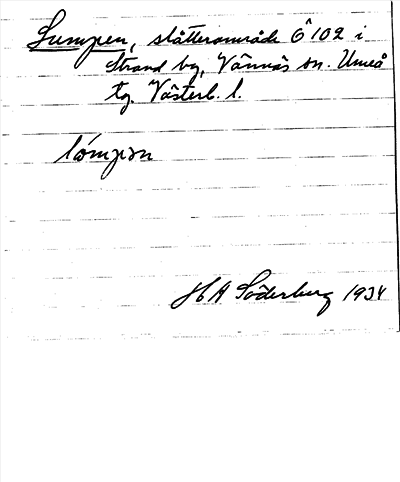 Lumpen, slåtterområde Ô 102 i
Strand by, Vännäs sn. Umeå
tg. Västerb. l.
lómpən
HA Söderberg 1934